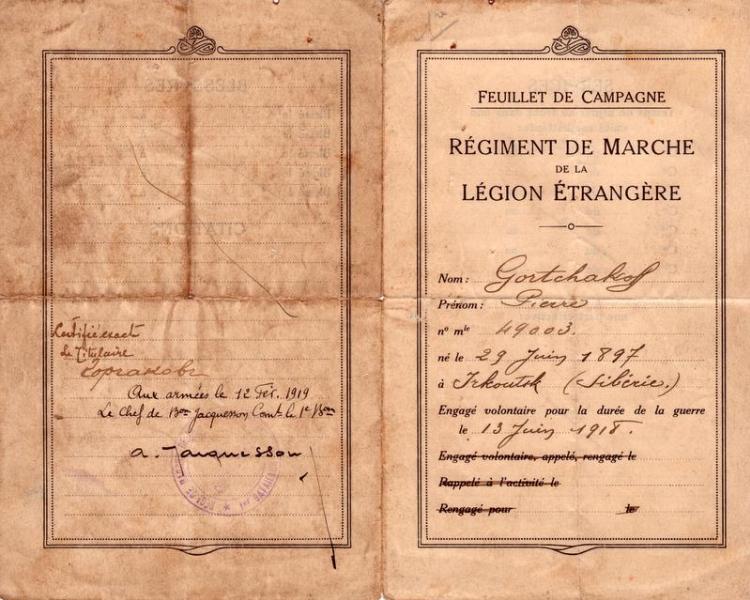 Certifié exact
Le Titulaire
Горчаковъ
Aux armées le 12 Fév. 1919
Le Chef de Bon Jacquesson Comt le 1er Bon
A. Jacquesson
FEUILLET DE CAMPAGNE
RÉGIMENT DE MARCHE
DE LA
LÉGION ÉTRANGÈRE
Nom : Gortchakoff
Prénom : Pierre
no mle 49003.
né le 29 Juin 1897
à Irkoutsk (Sibérie.)
Engagé volontaire pour la durée de la guerre
le 13 Juin 1918.
Engagé volontaire, appelé, rengagé le
Rappelé à l'activité le
Rengagé pour le